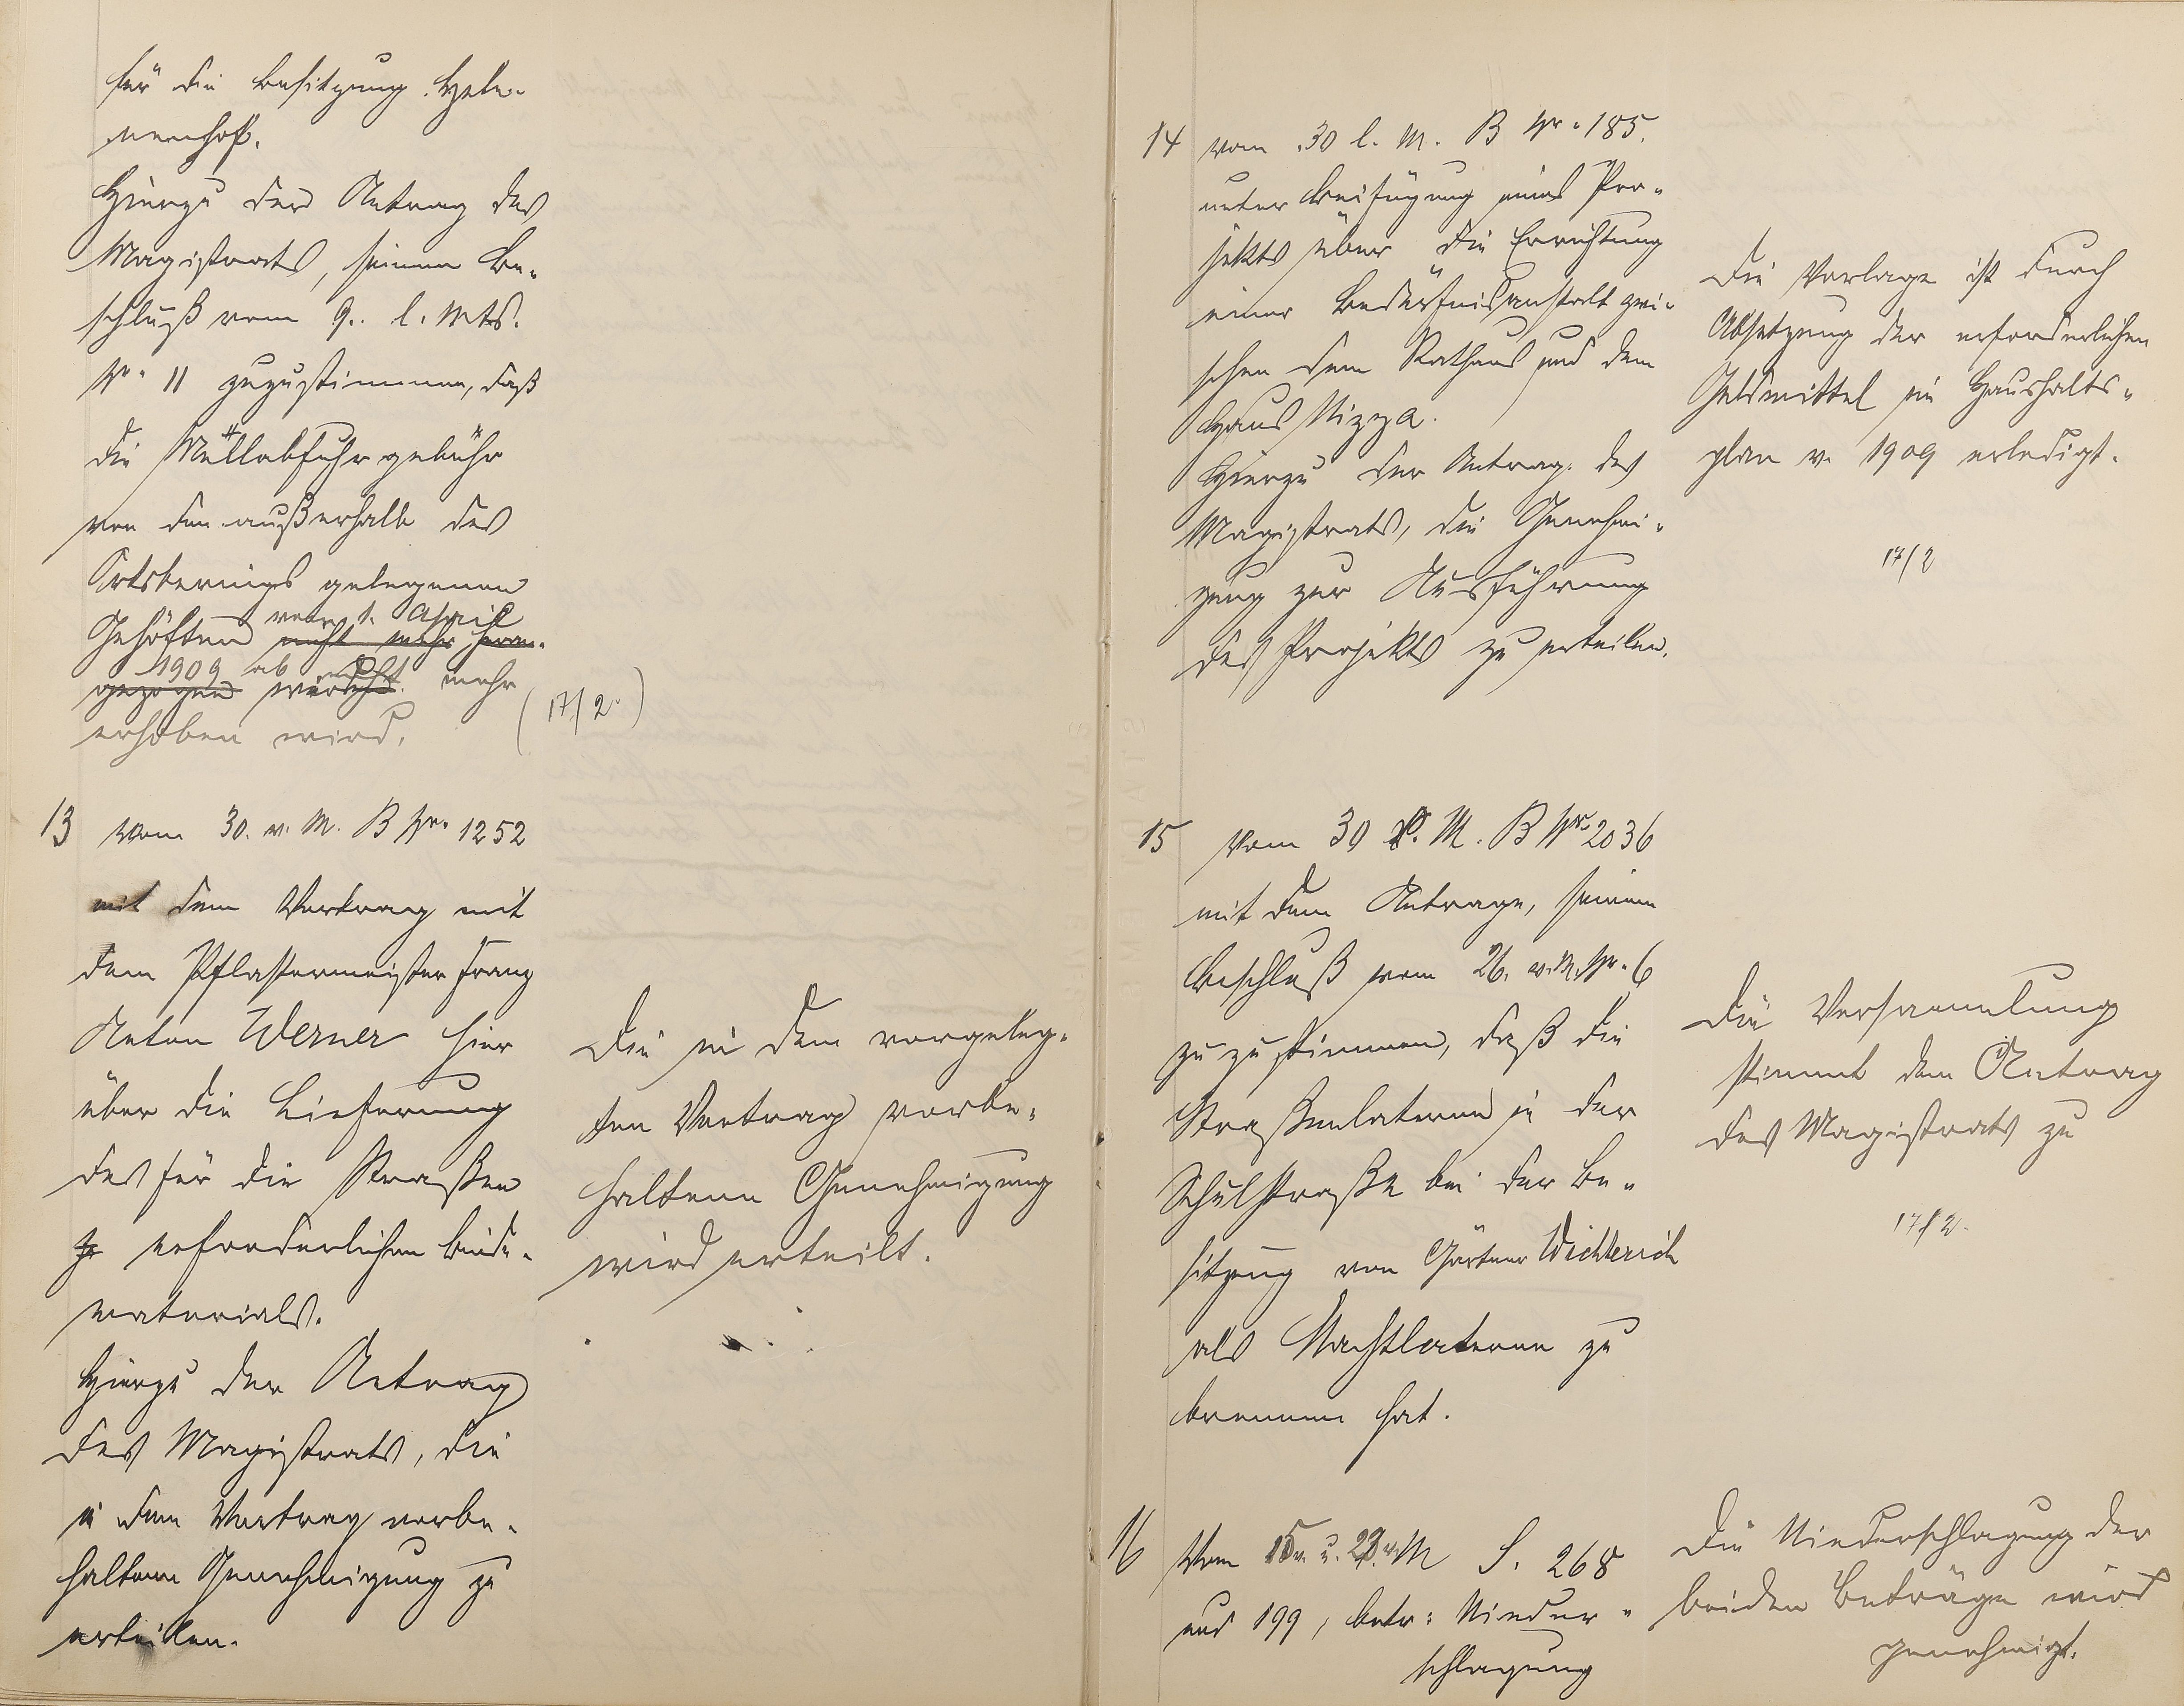 für die Besitzung Hele-
nenhof.
Hierzu der Antrag des
Magistrats, seinem Be-
schluß vom 9. l. Mts.
Nr. 11 zuzustimmen, daß
die Müllabfuhrgebühr
von den außerhalb des
Ortsberings gelegenen
vom 1. April
Gehöften nicht mehr heran-
1909 ab nicht mehr
gezogen werden.
erhoben wird.
(17/2.)
13 vom 30. v. M. B Nr. 1252
mit dem Vertrag mit
dem Pflastermeister Franz
Anton Werner hier
über die Lieferung
des für die Straßen
erforderlichen Binde-
materials.
Hierzu der Antrag
des Magistrats, die
in dem Vertrag vorbe-
haltene Genehmigung zu
erteilen.
Die in dem vorgeleg-
ten Vertrag vorbe-
haltene Genehmigung
wird erteilt.
14 vom 30 l. M. B Nr. 185.
unter Beifügung eines Pro-
jekts über die Errichtung
einer Bedürfnisanstalt zwi-
schen dem Rathaus und dem
Haus Nizza.
Hierzu der Antrag des
Magistrats, die Genehmi-
gung zur Ausführung
des Projekts zu erteilen.
Die Vorlage ist durch
Absetzung der erforderlichen
Geldmittel im Haushalts-
plan v. 1909 erledigt.
17/2
15 vom 30 v. M. B Nr. 2036
mit dem Antrage, seinem
Beschluß vom 26. v. M. Nr. 6
zuzustimmen, daß die
Straßenlaterne in der
Schulstraße bei der Be-
sitzung von Gärtner Wichterich
als Nachtlaterne zu
brennen hat.
Die Versammlung
stimmt dem Antrag
des Magistrats zu
17/2.
16 Vom 15. u. 23. v. M S. 268
und 199, betr: Nieder-
schlagung
Die Niederschlagung der
beiden Beträge wird
genehmigt.